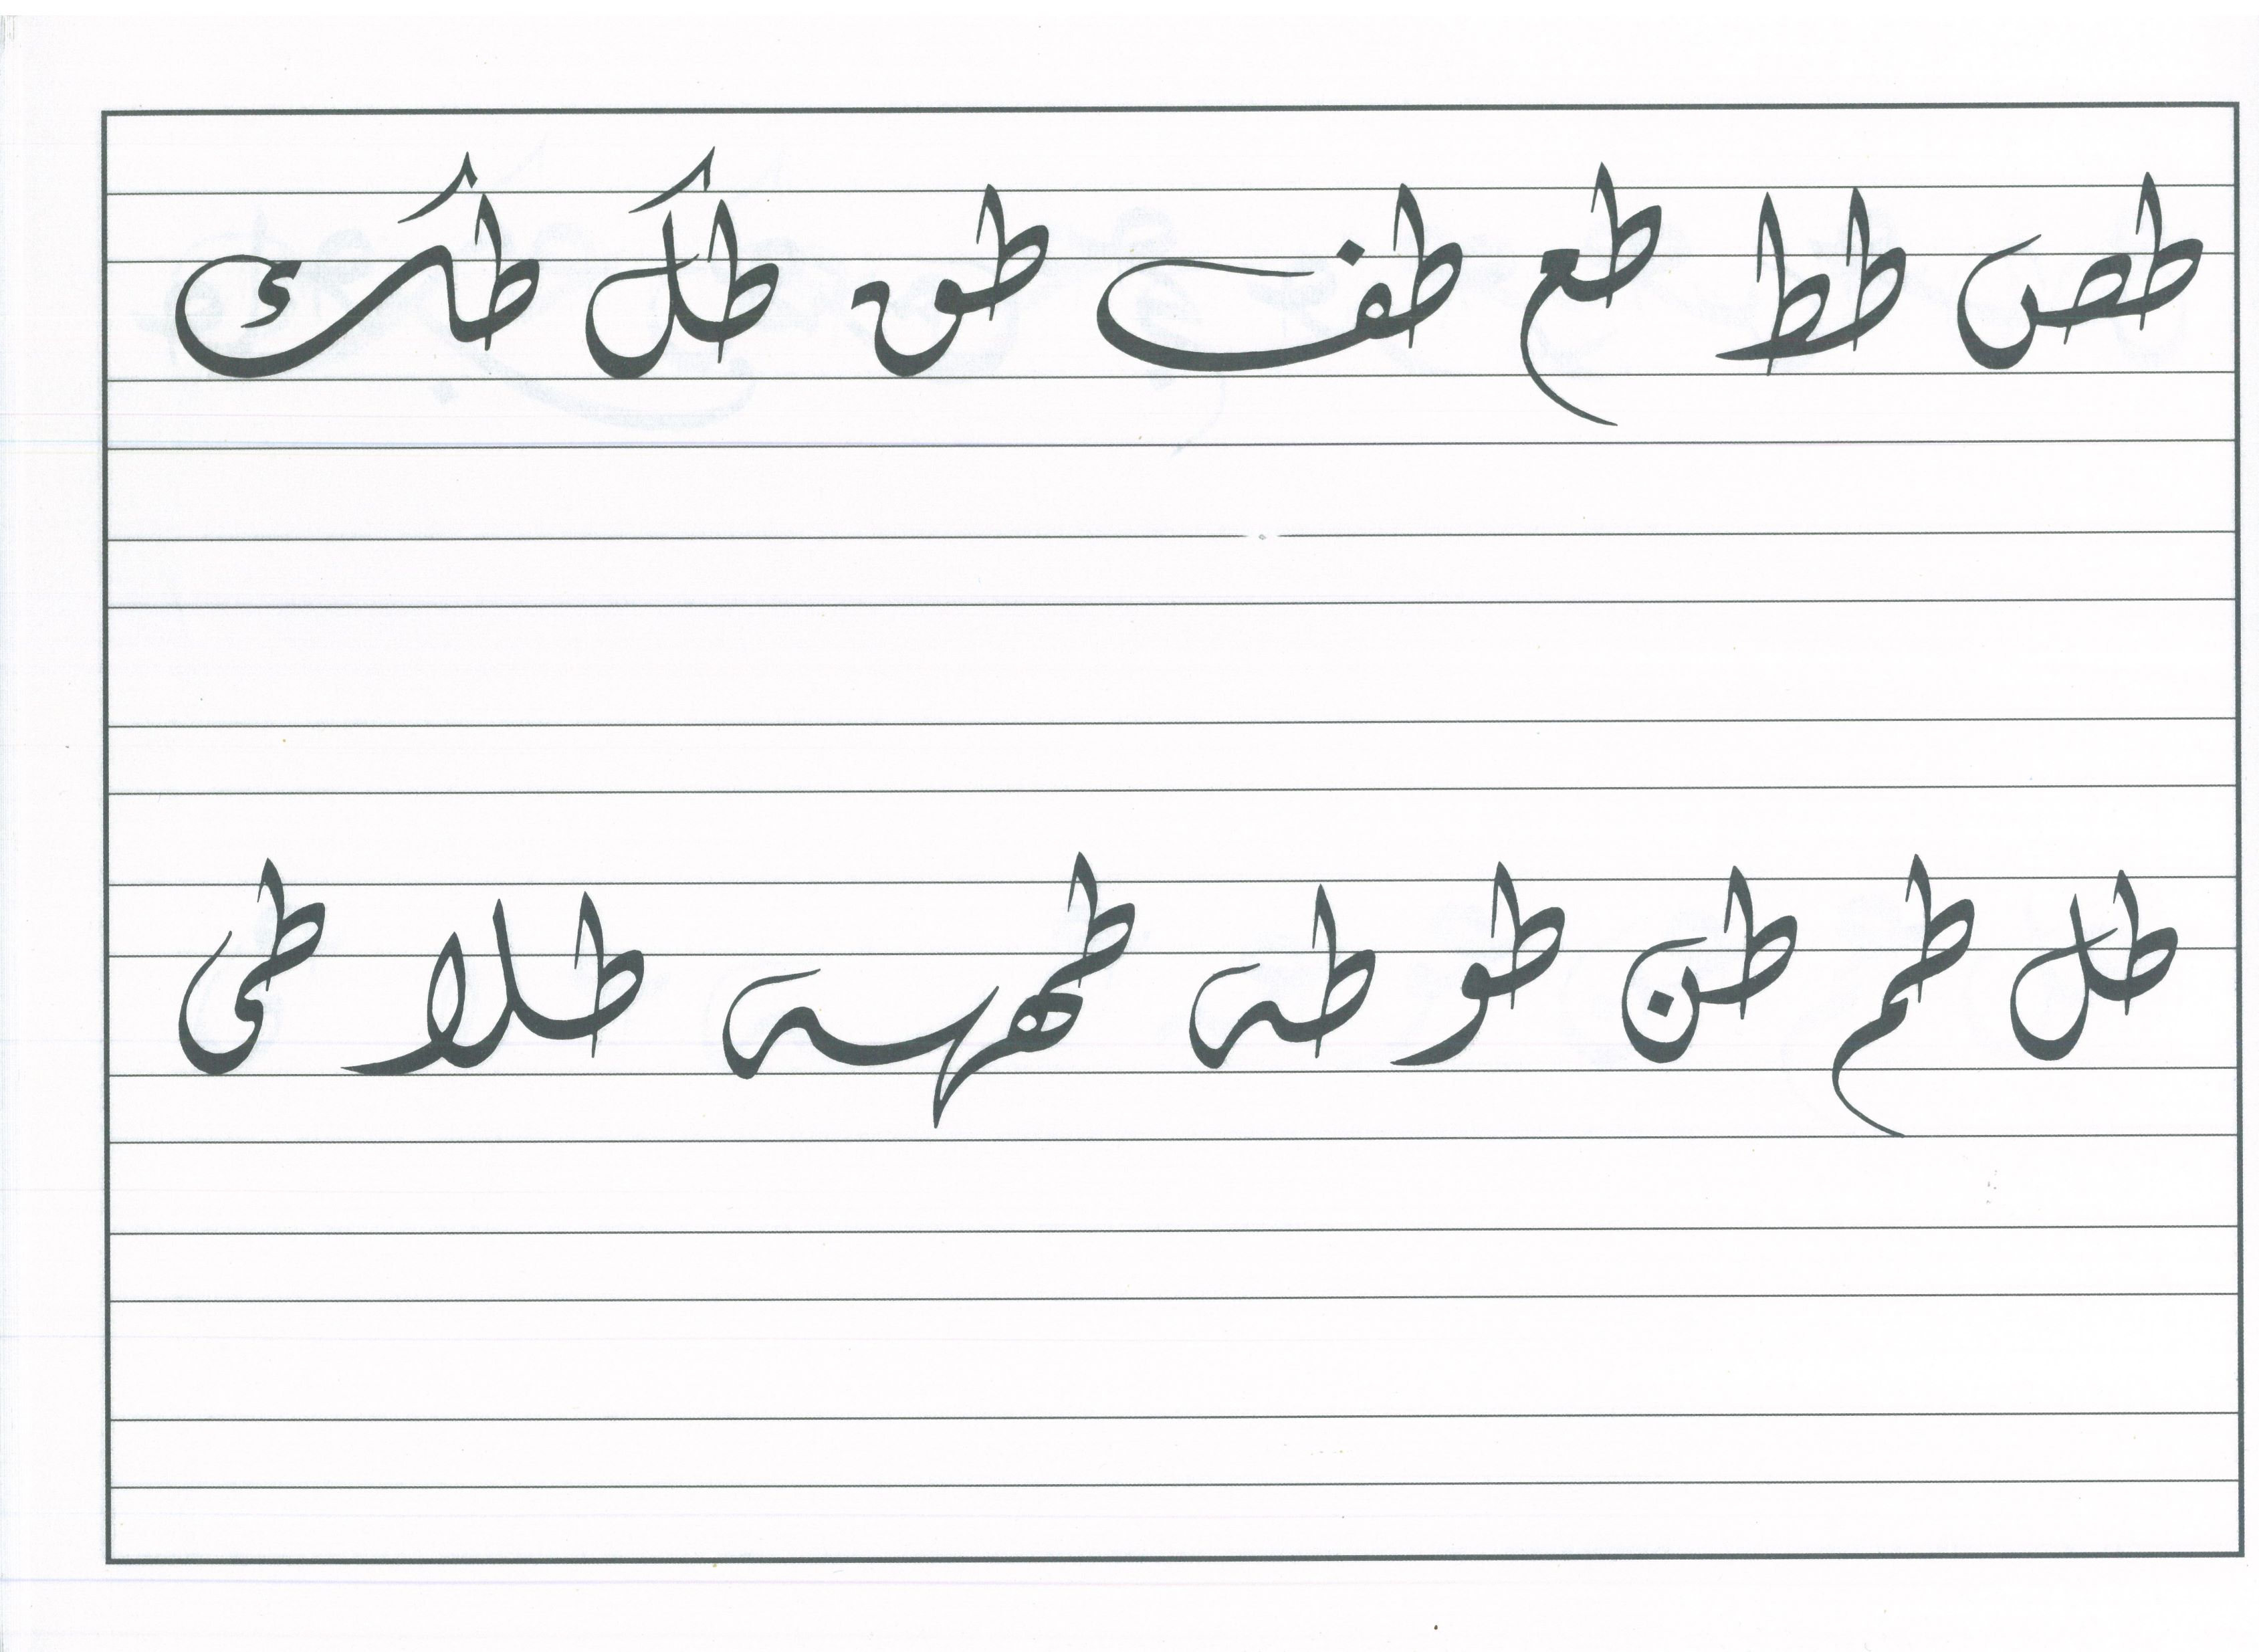 طص طط طع طف طق طكل طك
طل طم طن طو طه طهمه طلا طى